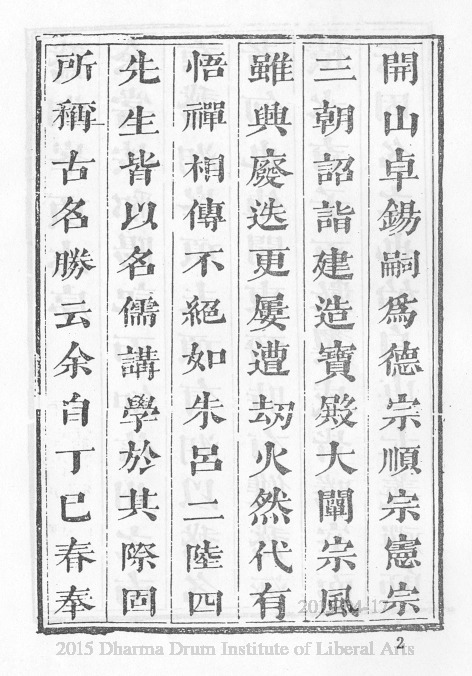 開山卓錫嗣爲德宗順宗憲宗
三朝詔詣建造寶殿大闡宗風
雖興廢迭更屢遭劫火然代有
悟禪相傳不絕如朱呂二陸四
先生皆以名儒講學於其際固
所稱古名勝云余自丁巳春奉
2
2015 Dharma Drum Institute of Liberal Arts